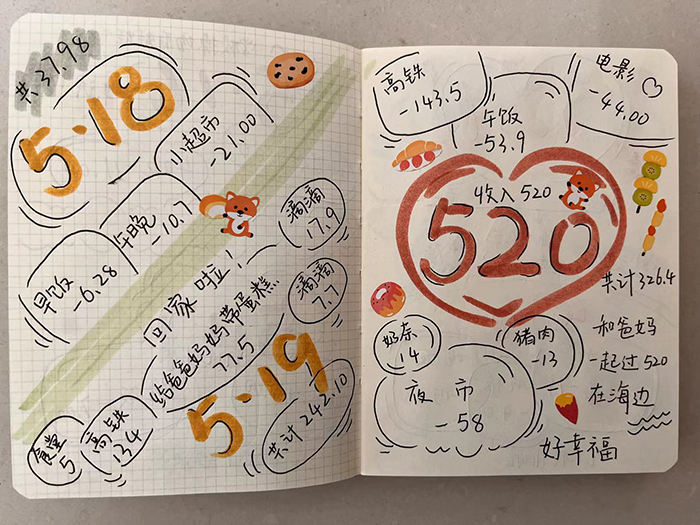 共37.98
5·18
小超市
-21.00
午晚
-10.7
早饭
-6.28
回家啦！
滴滴
17.9
滴滴
7.7
给爸爸妈妈带蛋糕
77.5
5·19
高铁
134
食堂
5
共计242.10
高铁
-143.5
午饭
-53.9
电影
-44.00
收入520
520
共计326.4
奶茶
14
猪肉
-13
夜市
-58
和爸妈
一起过520
在海边
好幸福